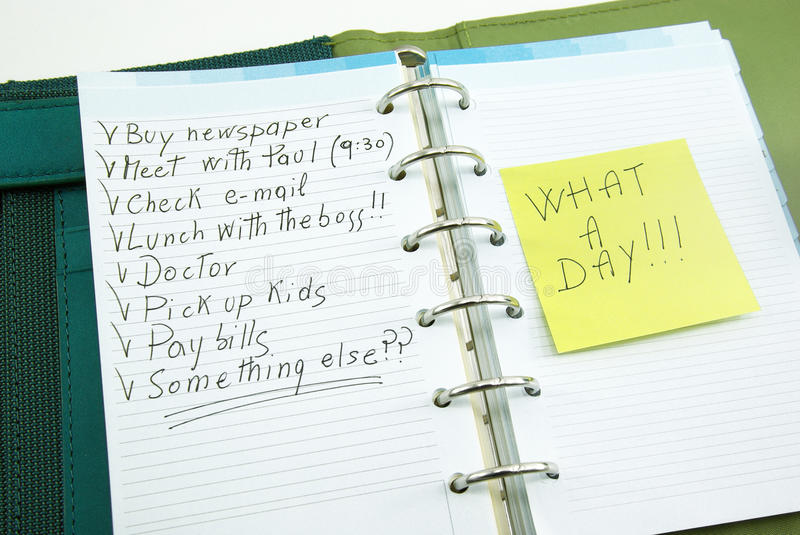 √ Buy newspaper
√ Meet with Paul (9:30)
√ Check e-mail
√ Lunch with the boss!!
√ Doctor
√ Pick up kids
√ Pay bills
√ Something else??
WHAT
A
DAY!!!
dreamstime